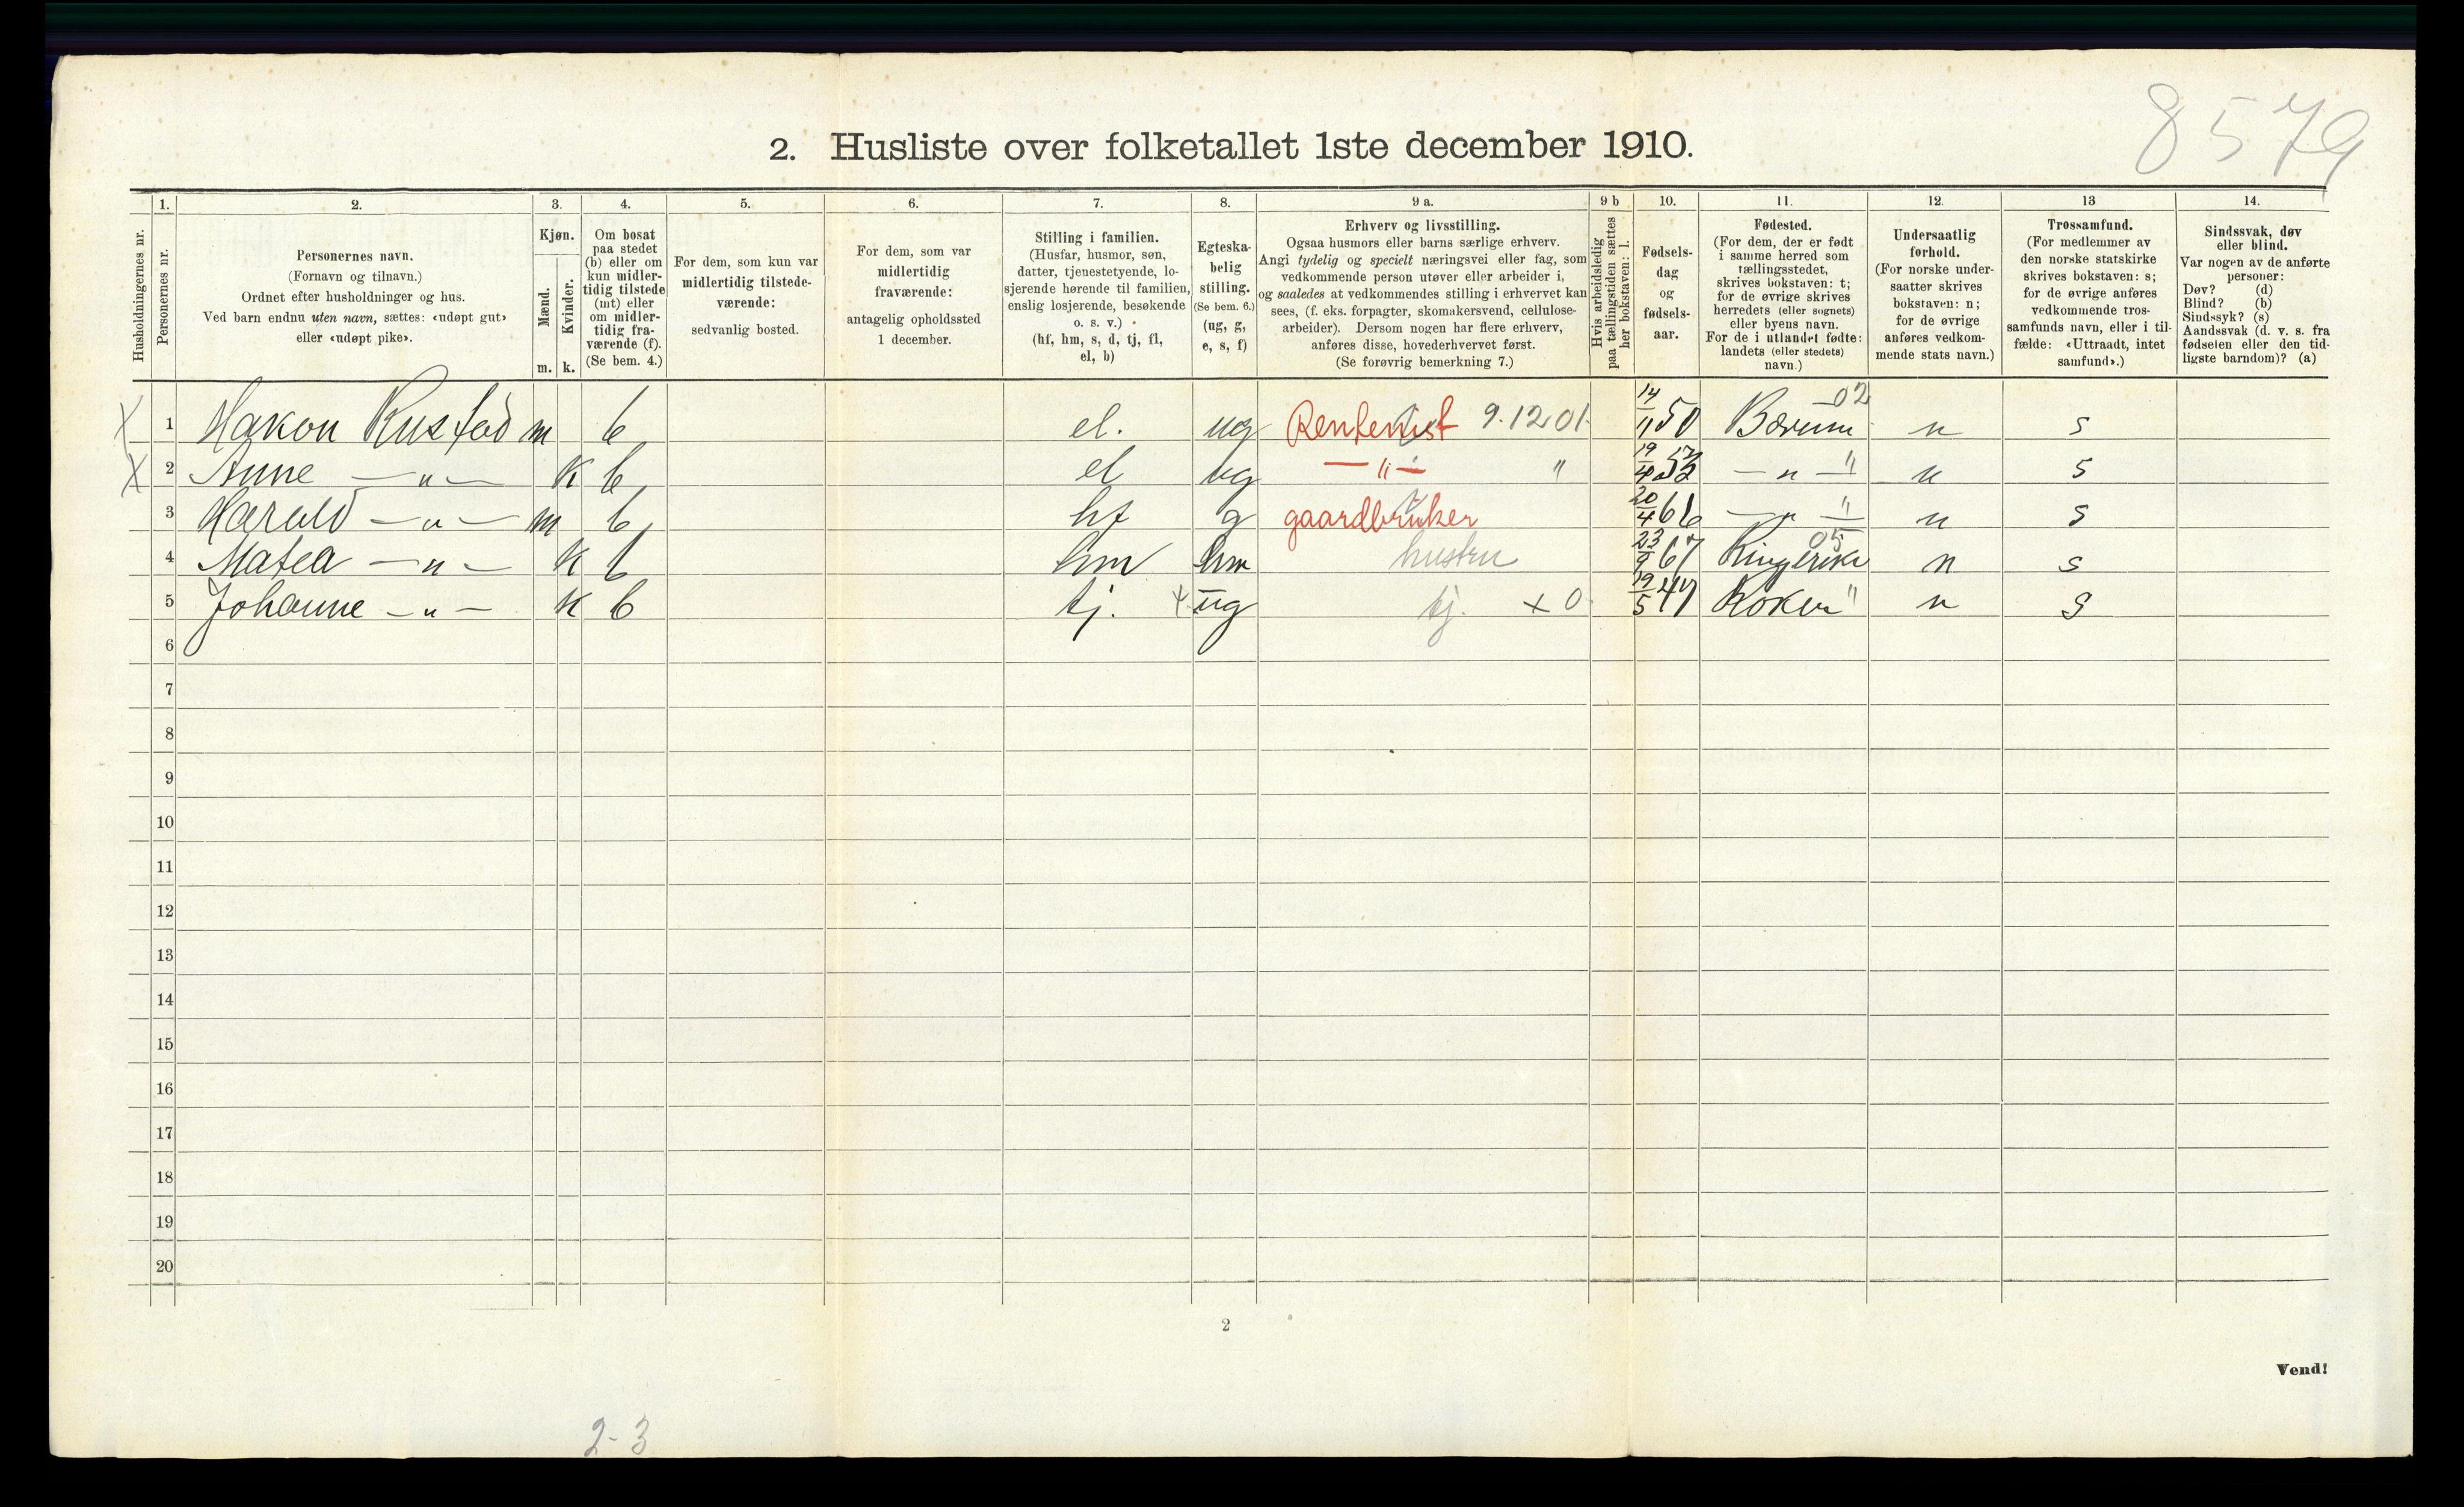 8579
2. Husliste over folketallet 1ste december 1910.
Husholdningernes nr.
1.
Personernes nr.
2.
Personernes navn.
(Fornavn og tilnavn.)
Ordnet efter husholdninger og hus.
Ved barn endnu uten navn, sættes: «udøpt gut»
eller «udøpt pike».
3.
Kjøn.
Mænd.
Kvinder.
m. k.
4.
Om bosat
paa stedet
(b) eller om
kun midler-
tidig tilstede
(mt) eller
om midler-
tidig fra-
værende (f).
(Se bem. 4.)
5.
For dem, som kun var
midlertidig tilstede-
værende:
sedvanlig bosted.
6.
For dem, som var
midlertidig
fraværende:
antagelig opholdssted
1 december.
7.
Stilling i familien.
(Husfar, husmor, søn,
datter, tjenestetyende, lo-
sjerende hørende til familien,
enslig losjerende, besøkende
o. s. v.)
(hf, hm, s, d, tj, fl,
el, b)
8.
Egteska-
belig
stilling.
(Se bem. 6.)
(ug, g,
e, s, f)
9 a.
Erhverv og livsstilling.
Ogsaa husmors eller barns særlige erhverv.
Angi tydelig og specielt næringsvei eller fag, som
vedkommende person utøver eller arbeider i,
og saaledes at vedkommendes stilling i erhvervet kan
sees, (f. eks. forpagter, skomakersvend, cellulose-
arbeider). Dersom nogen har flere erhverv,
anføres disse, hovederhvervet først.
(Se forøvrig bemerkning 7.)
9 b
Hvis arbeidsledig
paa tællingstiden sættes
her bokstaven: l.
10.
Fødsels-
dag
og
fødsels-
aar.
11.
Fødested.
(For dem, der er født
i samme herred som
tællingsstedet,
skrives bokstaven: t;
for de øvrige skrives
herredets (eller sognets)
eller byens navn.
For de i utlandet fødte:
landets (eller stedets)
navn.)
12.
Undersaatlig
forhold.
(For norske under-
saatter skrives
bokstaven: n;
for de øvrige
anføres vedkom-
mende stats navn.)
13
Trossamfund.
(For medlemmer av
den norske statskirke
skrives bokstaven: s;
for de øvrige anføres
vedkommende tros-
samfunds navn, eller i til-
fælde: «Uttraadt, intet
samfund».)
14.
Sindssvak, døv
eller blind.
Var nogen av de anførte
personer:
Døv? (d)
Blind? (b)
Sindssyk? (s)
Aandssvak (d. v. s. fra
fødselen eller den tid-
ligste barndom)? (a)
X 1 Hakon Rustad m b el. ug Rentenist 9.12 01 14/11 50 Bærum 02 n s
X 2 Anne —"— k b el ug —"— " 19/4 —"— " n s
3 Harald —"— m b hf g gaardbruker 20/4 66 —"— " n s
4 Matea —"— k b hm hm hustru 23/9 67 Ringerike 05 n s
5 Johanne —"— k b tj. ug tj. x 0 19/5 47 " n s
6
7
8
9
10
11
12
13
14
15
16
17
18
19
20
2
Vend!
2-3